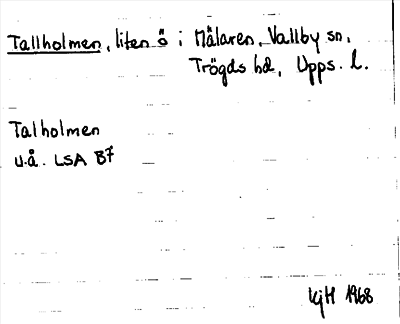 Tallholmen, liten ö i Mälaren, Vallby sn,
Trögds hd, Upps. l.
Talholmen
u.å. LSA B7
KjH 1968